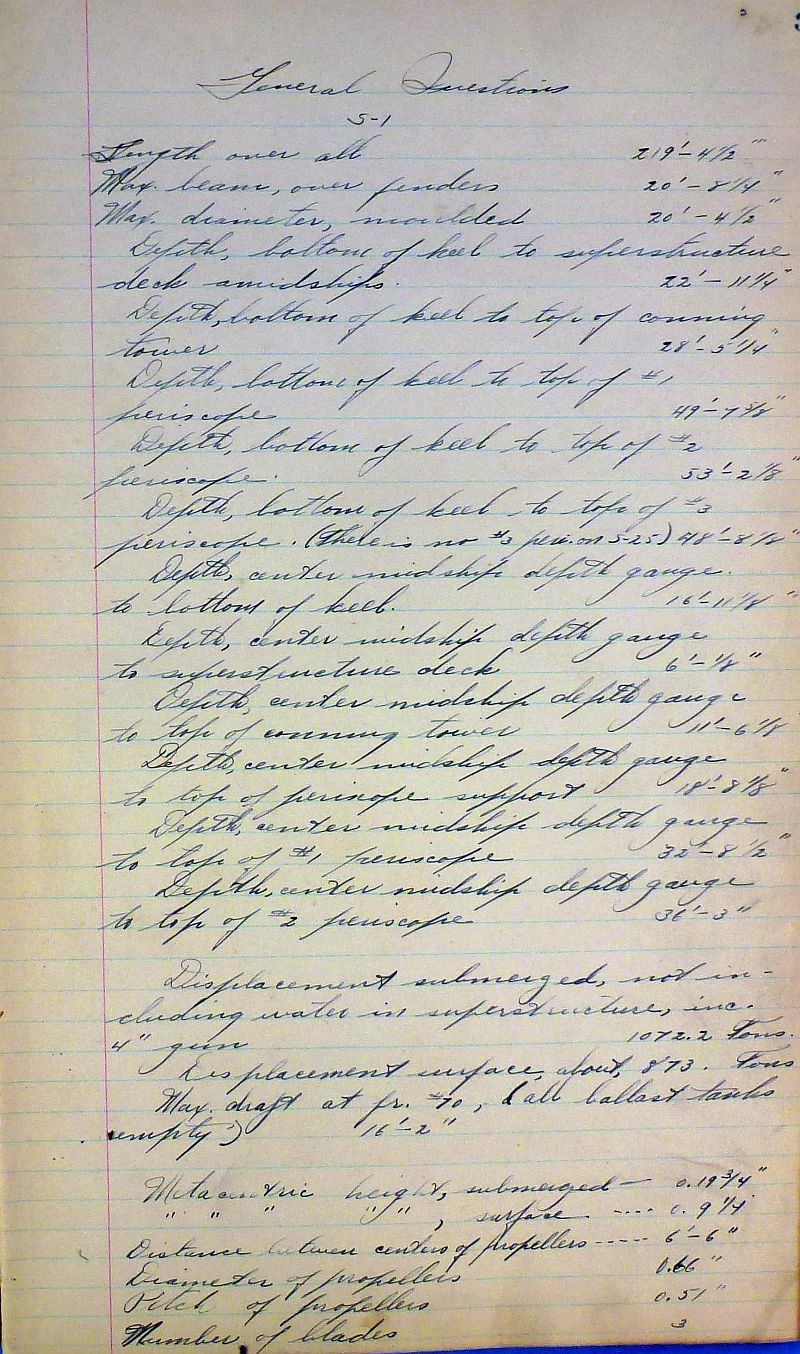 General Questions
S-1
Length over all 219'-4 1/2"
Max. beam, over fenders 20'-8 1/4"
Max. diameter, moulded 20'-4 1/2"
Depth, bottom of keel to superstructure
deck amidships. 22'-11 1/4"
Depth, bottom of keel to top of conning
tower 28'-5 1/4"
Depth, bottom of keel to top of #1
periscope 49'-7 5/8"
Depth, bottom of keel to top of #2
periscope. 53'-2 1/8"
Depth, bottom of keel to top of #3
periscope. (There is no #3 peri. on S-25) 48'-8 1/8"
Depth, center midship depth gauge.
to bottom of keel. 16'-11 1/8"
Depth, center midship depth gauge
to superstructure deck 6'-1/8"
Depth, center midship depth gauge
to top of conning tower 11'-6 1/8
Depth, center midship depth gauge
to top of periscope support 18'-8 1/8"
Depth, center midship depth gauge
to top of #1 periscope 32'-8 1/2"
Depth, center midship depth gauge
to top of #2 periscope 36'-3"
Displacement submerged, not in-
cluding water in superstructure, inc.
4" gun 1072.2 Tons.
Displacement surface, about, 873. Tons
Max. draft at fr. #70, (all ballast tanks
empty) 16'-2"
Metacentric height, submerged — 0.19 3/4"
" " " " ", surface .... 0.9 1/4"
Distance between centers of propellers ----- 6'-6"
Diameter of propellers 0.66"
Pitch of propellers 0.51"
Number of blades 3